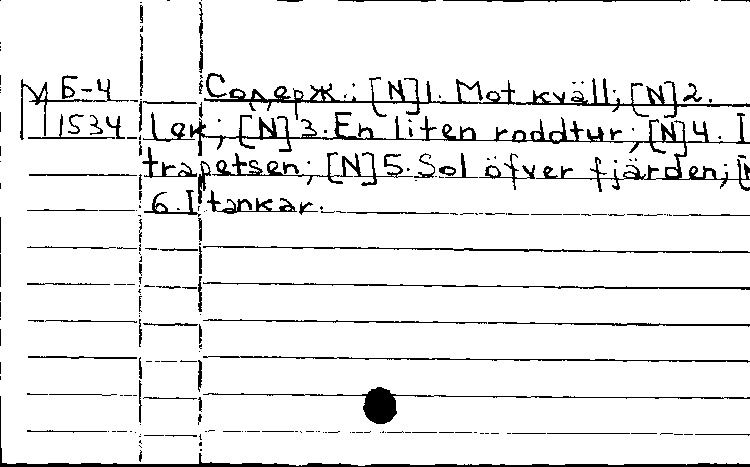 М Б-4 Содерж.: [N]1. Mot kväll; [N]2.
1534 Lek; [N]3. En liten roddtur; [N]4. I
trapetsen; [N]5. Sol öfver fjärden; [N
6. I tankar.